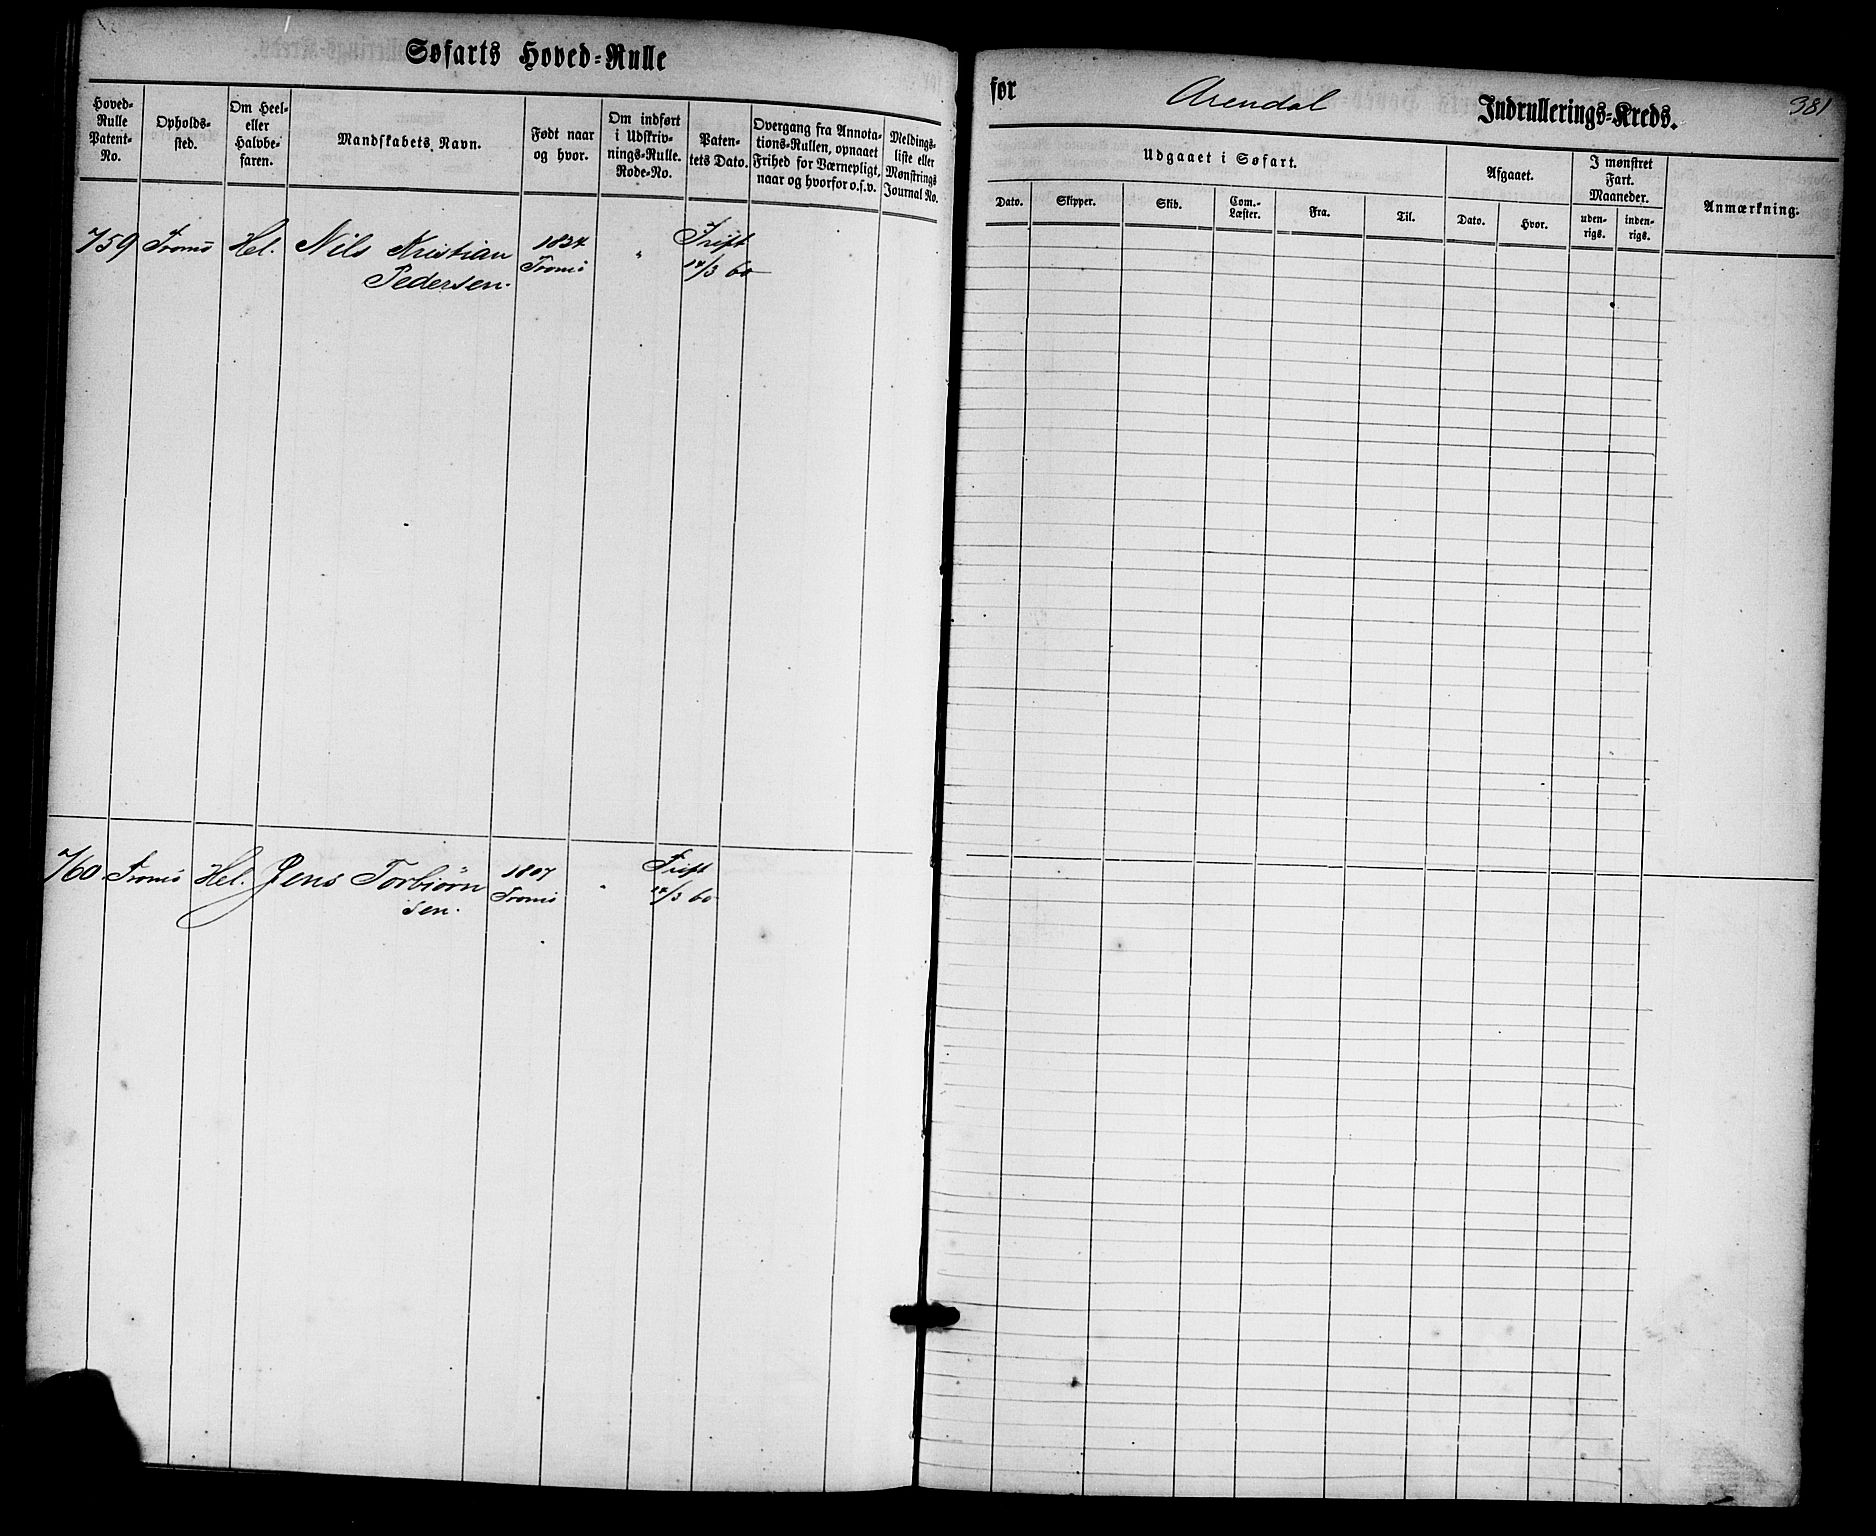 Søfarts Hoved-Rulle
Hoved-
Rulle
Patent-
No.
Opholds-
sted.
Om Heel-
eller
Halvbe-
faren.
Mandskabets Navn.
Født naar
og hvor.
Om indført
i Udskriv-
nings-Rulle.
Rode-No.
Paten-
tets Dato.
Overgang fra Annota-
tions-Rullen, opnaaet
Frihed for Værnepligt,
naar og hvorfor o.s.v.
Meldings-
liste eller
Mønstrings
Journal No.
759 Tromö Hel. Nils Kristian
Pedersen.
1824
Tromö
"
Frift
14/3 60
760 Tromö Hel. Jens Torbiörn
sen.
1807
Tromö
"
Frift
14/3 60
for Arendal Indrullerings-Kreds. 381
Udgaaet i Søfart.
Dato.
Skipper.
Skib.
Com.-
Læster.
Fra.
Til.
Afgaaet.
Dato.
Hvor.
I mønstret
Fart.
Maaneder.
uden-
rigs.
inden-
rigs.
Anmærkning.